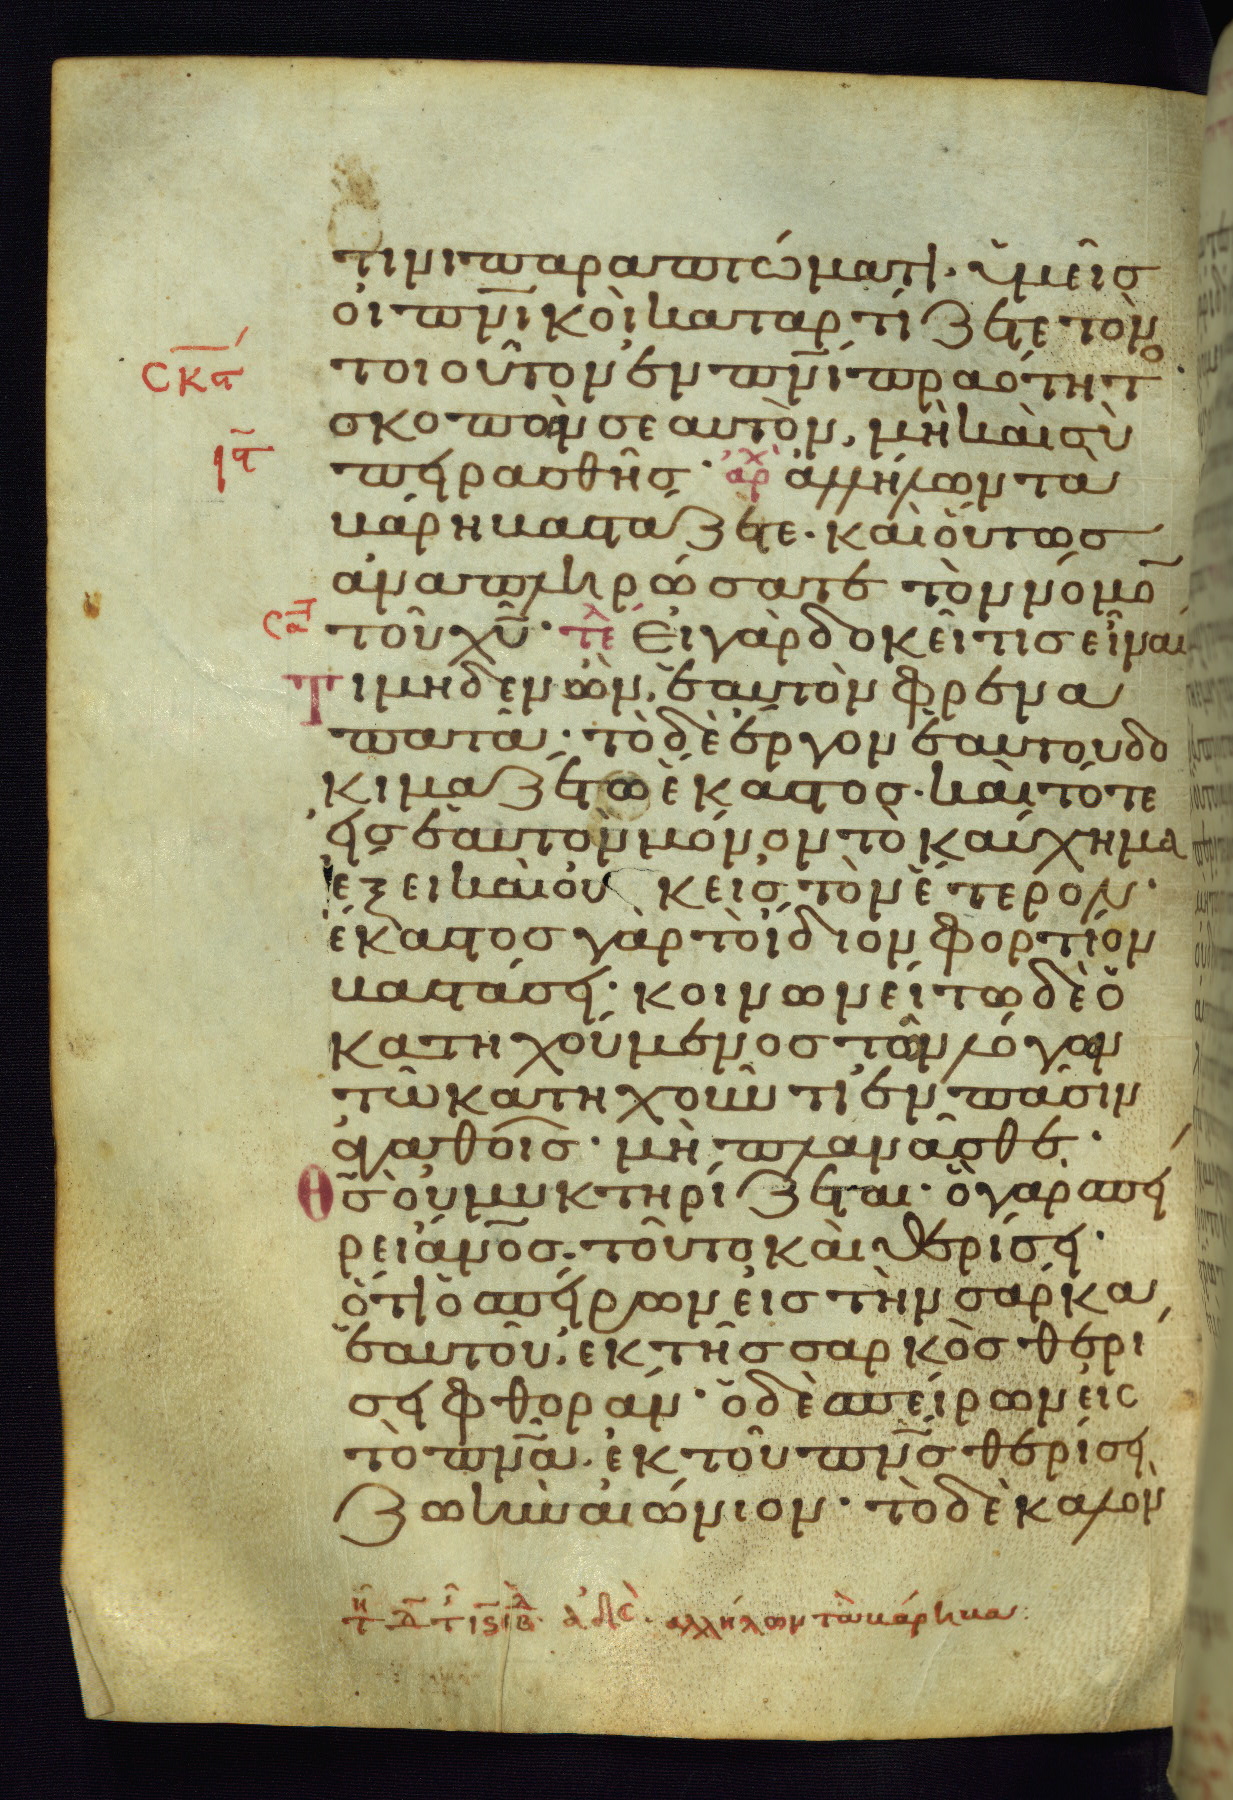 τινι παραπτώματι· ὑμεῖς
οἱ πν̅ικοὶ καταρτίζετε τὸν
τοιοῦτον ἐν πν̅ι πραότητο·
σκοπῶν σεαυτὸν, μὴ καὶ σὺ
πειρασθῆς· ἀρχ ἀλλήλων τὰ
βάρη βαστάζετε· καὶ οὕτως
ἀναπληρώσατε τὸν νόμο̅
τοῦ χῦ· τε̅λ Εἰ γὰρ δοκεῖ τις εἶναι
Τι μηδὲν ὢν, ἑαυτὸν φρενα
πατᾶ· τὸ δὲ ἔργον ἑαυτου δο
κιμαζέτω ἕκαστος· καὶ τότε
εἰς ἑαυτὸν μόνον τὸ καύχημα
ἕξει καὶ οὐκ εἰς τὸν ἕτερον·
ἕκαστος γὰρ τὸ ἴδιον φορτίον
βαστάσει· κοινωνείτω δὲ ὁ
κατηχούμενος τὸν λόγον
τῶ κατηχοῦντι ἐν πᾶσιν
ἀγαθοῖς· μὴ πλανᾶσθε·
Θς̅ οὐ μυκτηρίζεται· ὃ γὰρ σπεί
ρει ἄν̅ος· τοῦτο καὶ θερίσει·
ὅτι ὁ σπείρων εἰς τὴν σάρκα
ἑαυτοῦ, ἐκ τῆς σαρκὸς θερί
σει φθοράν· ὁ δὲ σπείρων εἰς
τὸ πν̅α· ἐκ τοῦ πν̅ς θερίσει
ζωὴν αἰώνιον· τὸ δὲ καλὸν
ἀδελ· ἀλλήλων τὰ βάρη βα·